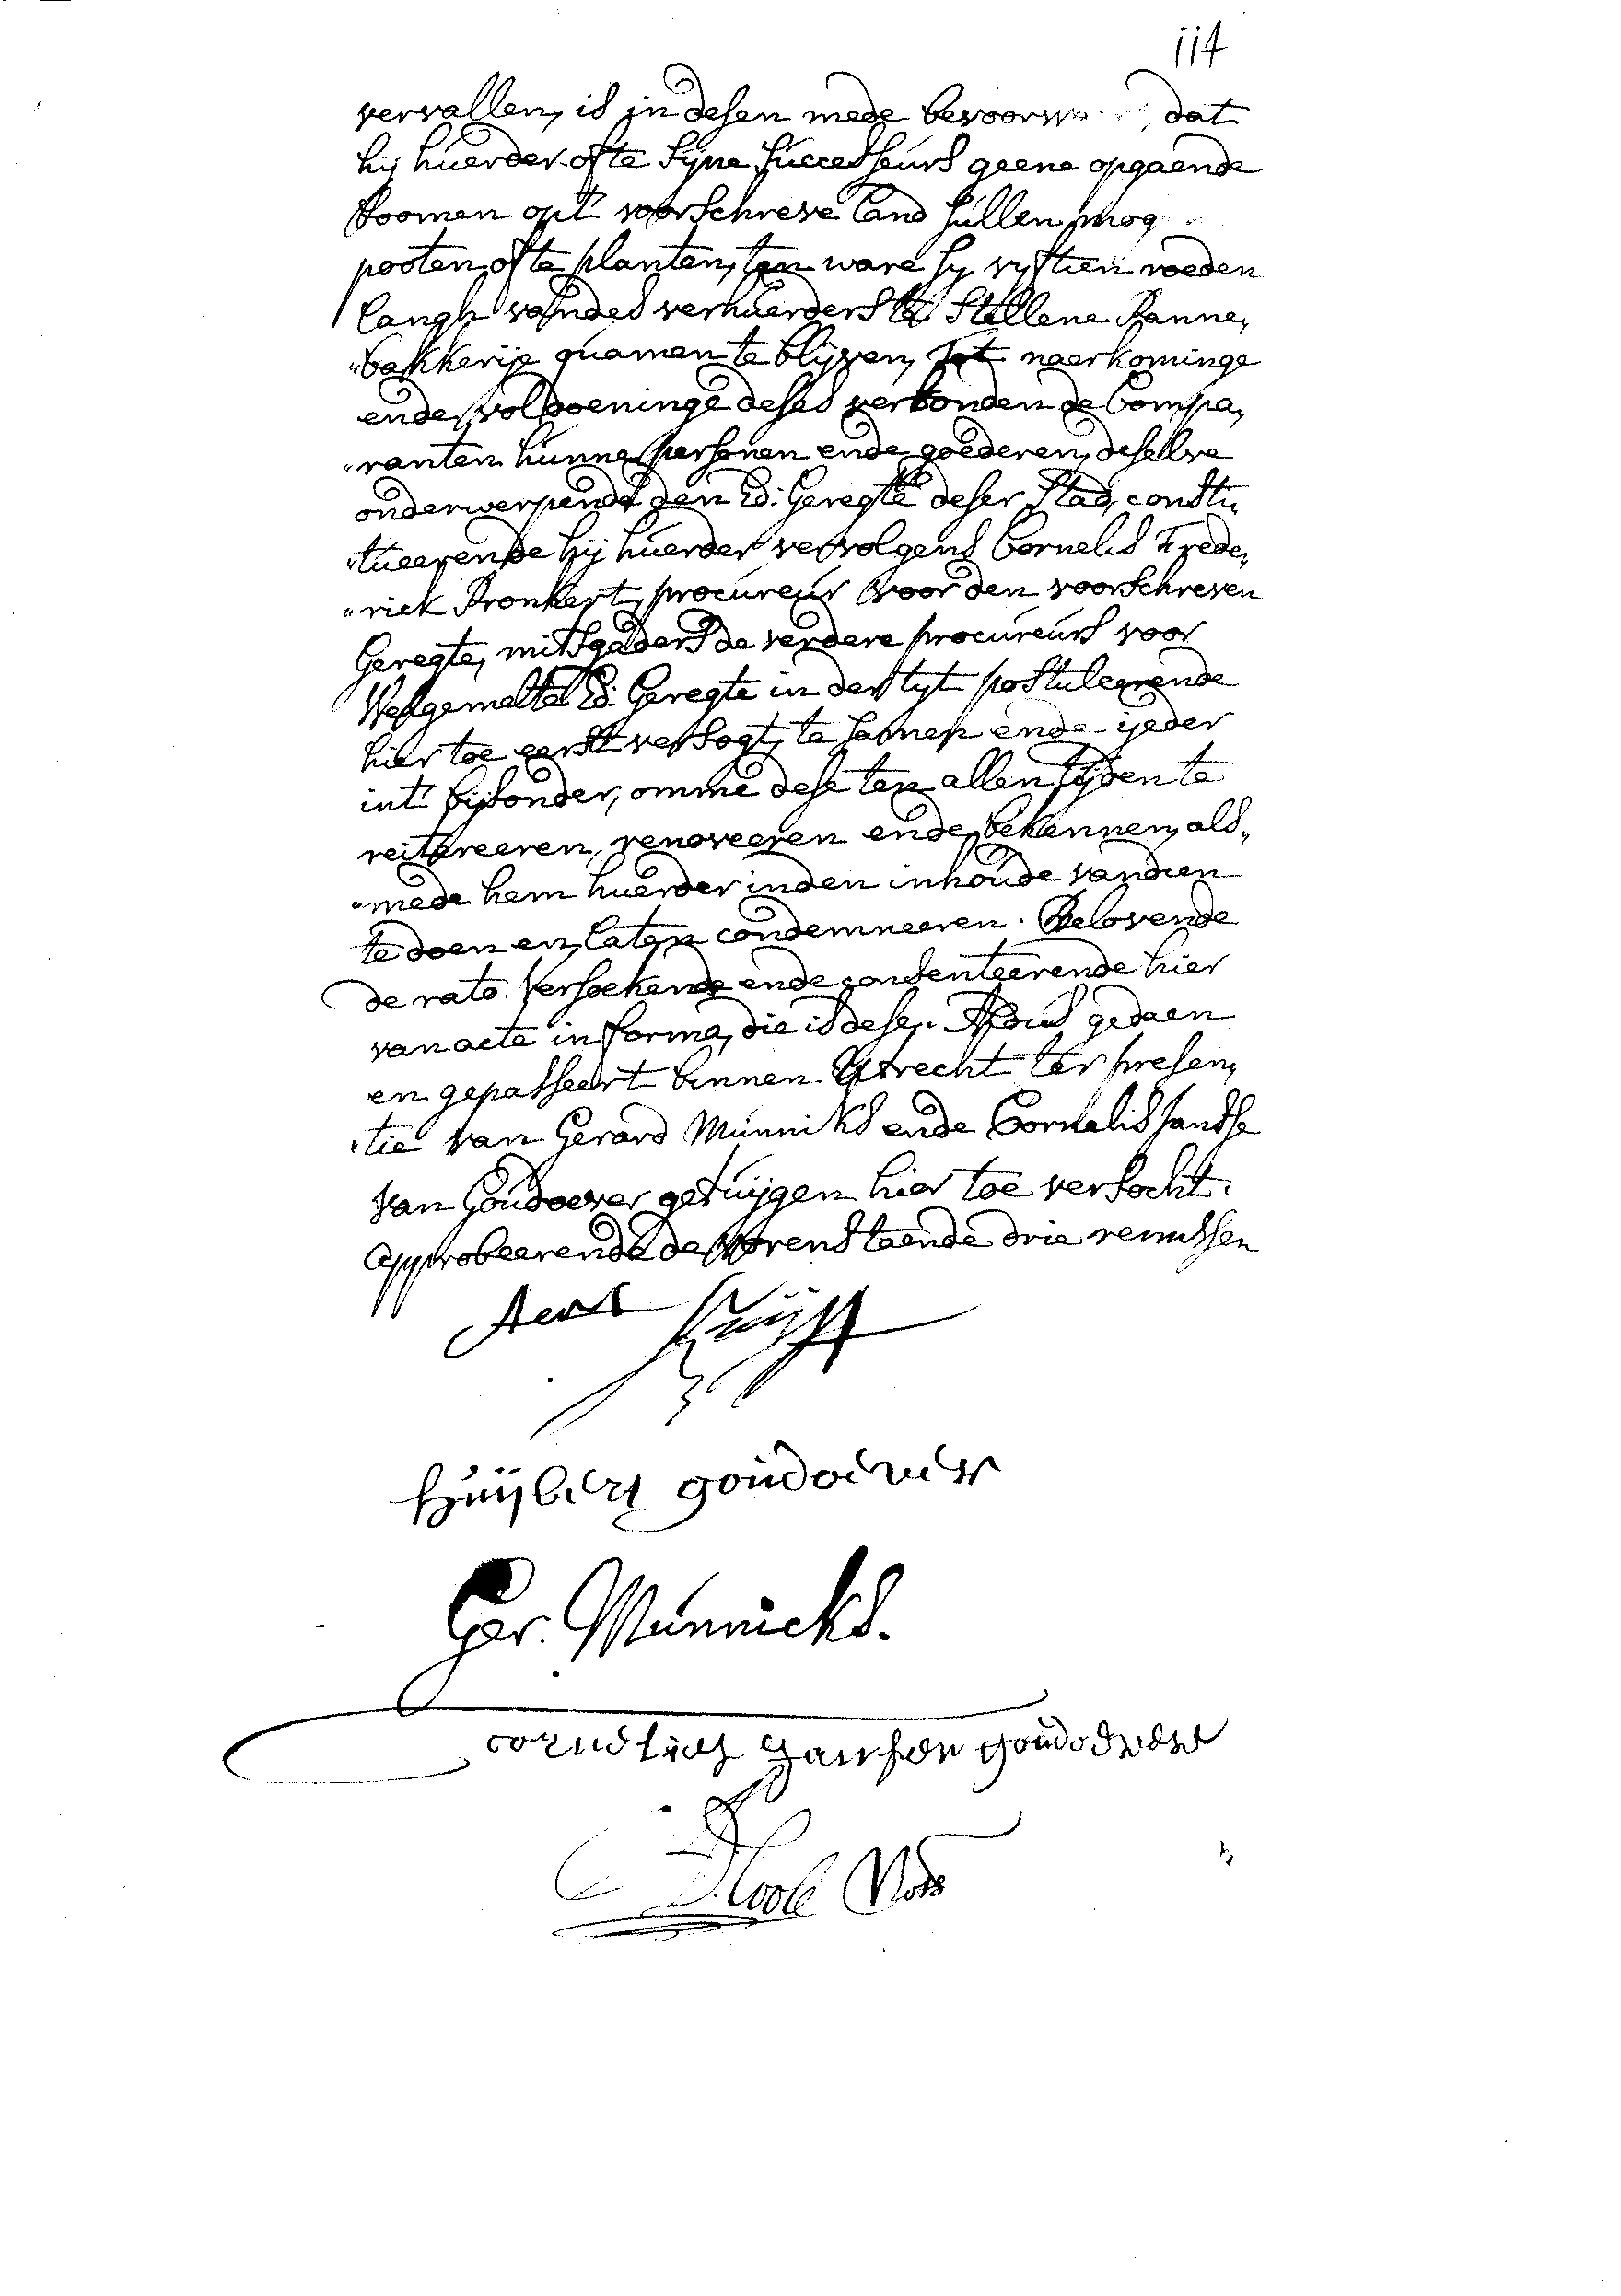 114
vervallen, is in desen mede bevoorw dat
hij huerder ofte sijne successeurs geene opgaende
boomen opt' voorschreve land sullen mog
pooten ofte planten, ten ware sij vijftien roeden
langh van des verhuerders te stellene Panne„
„bakkerije quamen te blijven, tot naerkominge
ende voldoeninge deses verbonden de Compa„
„ranten hunne personen ende goederen, deselve
onderwerpende den Ed: Geregte deser stad, constu„
„tueerende hij huerder vervolgens Cornelis Frede„
„rick Pronkert, procureur voor den voorschreven
Geregte, mitsgaders de verdere procureurs voor
Welgemelte Ed: Geregte in der tijt postuleerende
hier toe eerst versogt, te samen ende ijeder
int' bijsonder, omme dese ten allen tijden te
reitereeren, renoveeren ende bekennen, als„
„mede hem huerder inden inhoude van dien
te doen en, laten condemneeren. Belovende
de rato. Versoekende ende consenteerende hier
van acte in forma, die is dese. Aldus gedaen
en gepasseert binnen Utrecht ter presen„
„tie van Gerard Munniks ende Cornelis Janse
van Goudoever getuijgen hier toe versocht.
Approbeerende de vorenstaende drie renvissen
Aert
Huijbert goudoever
Ger. Munnicks.
cornelies Jansen goudoever
D. Coole Nots